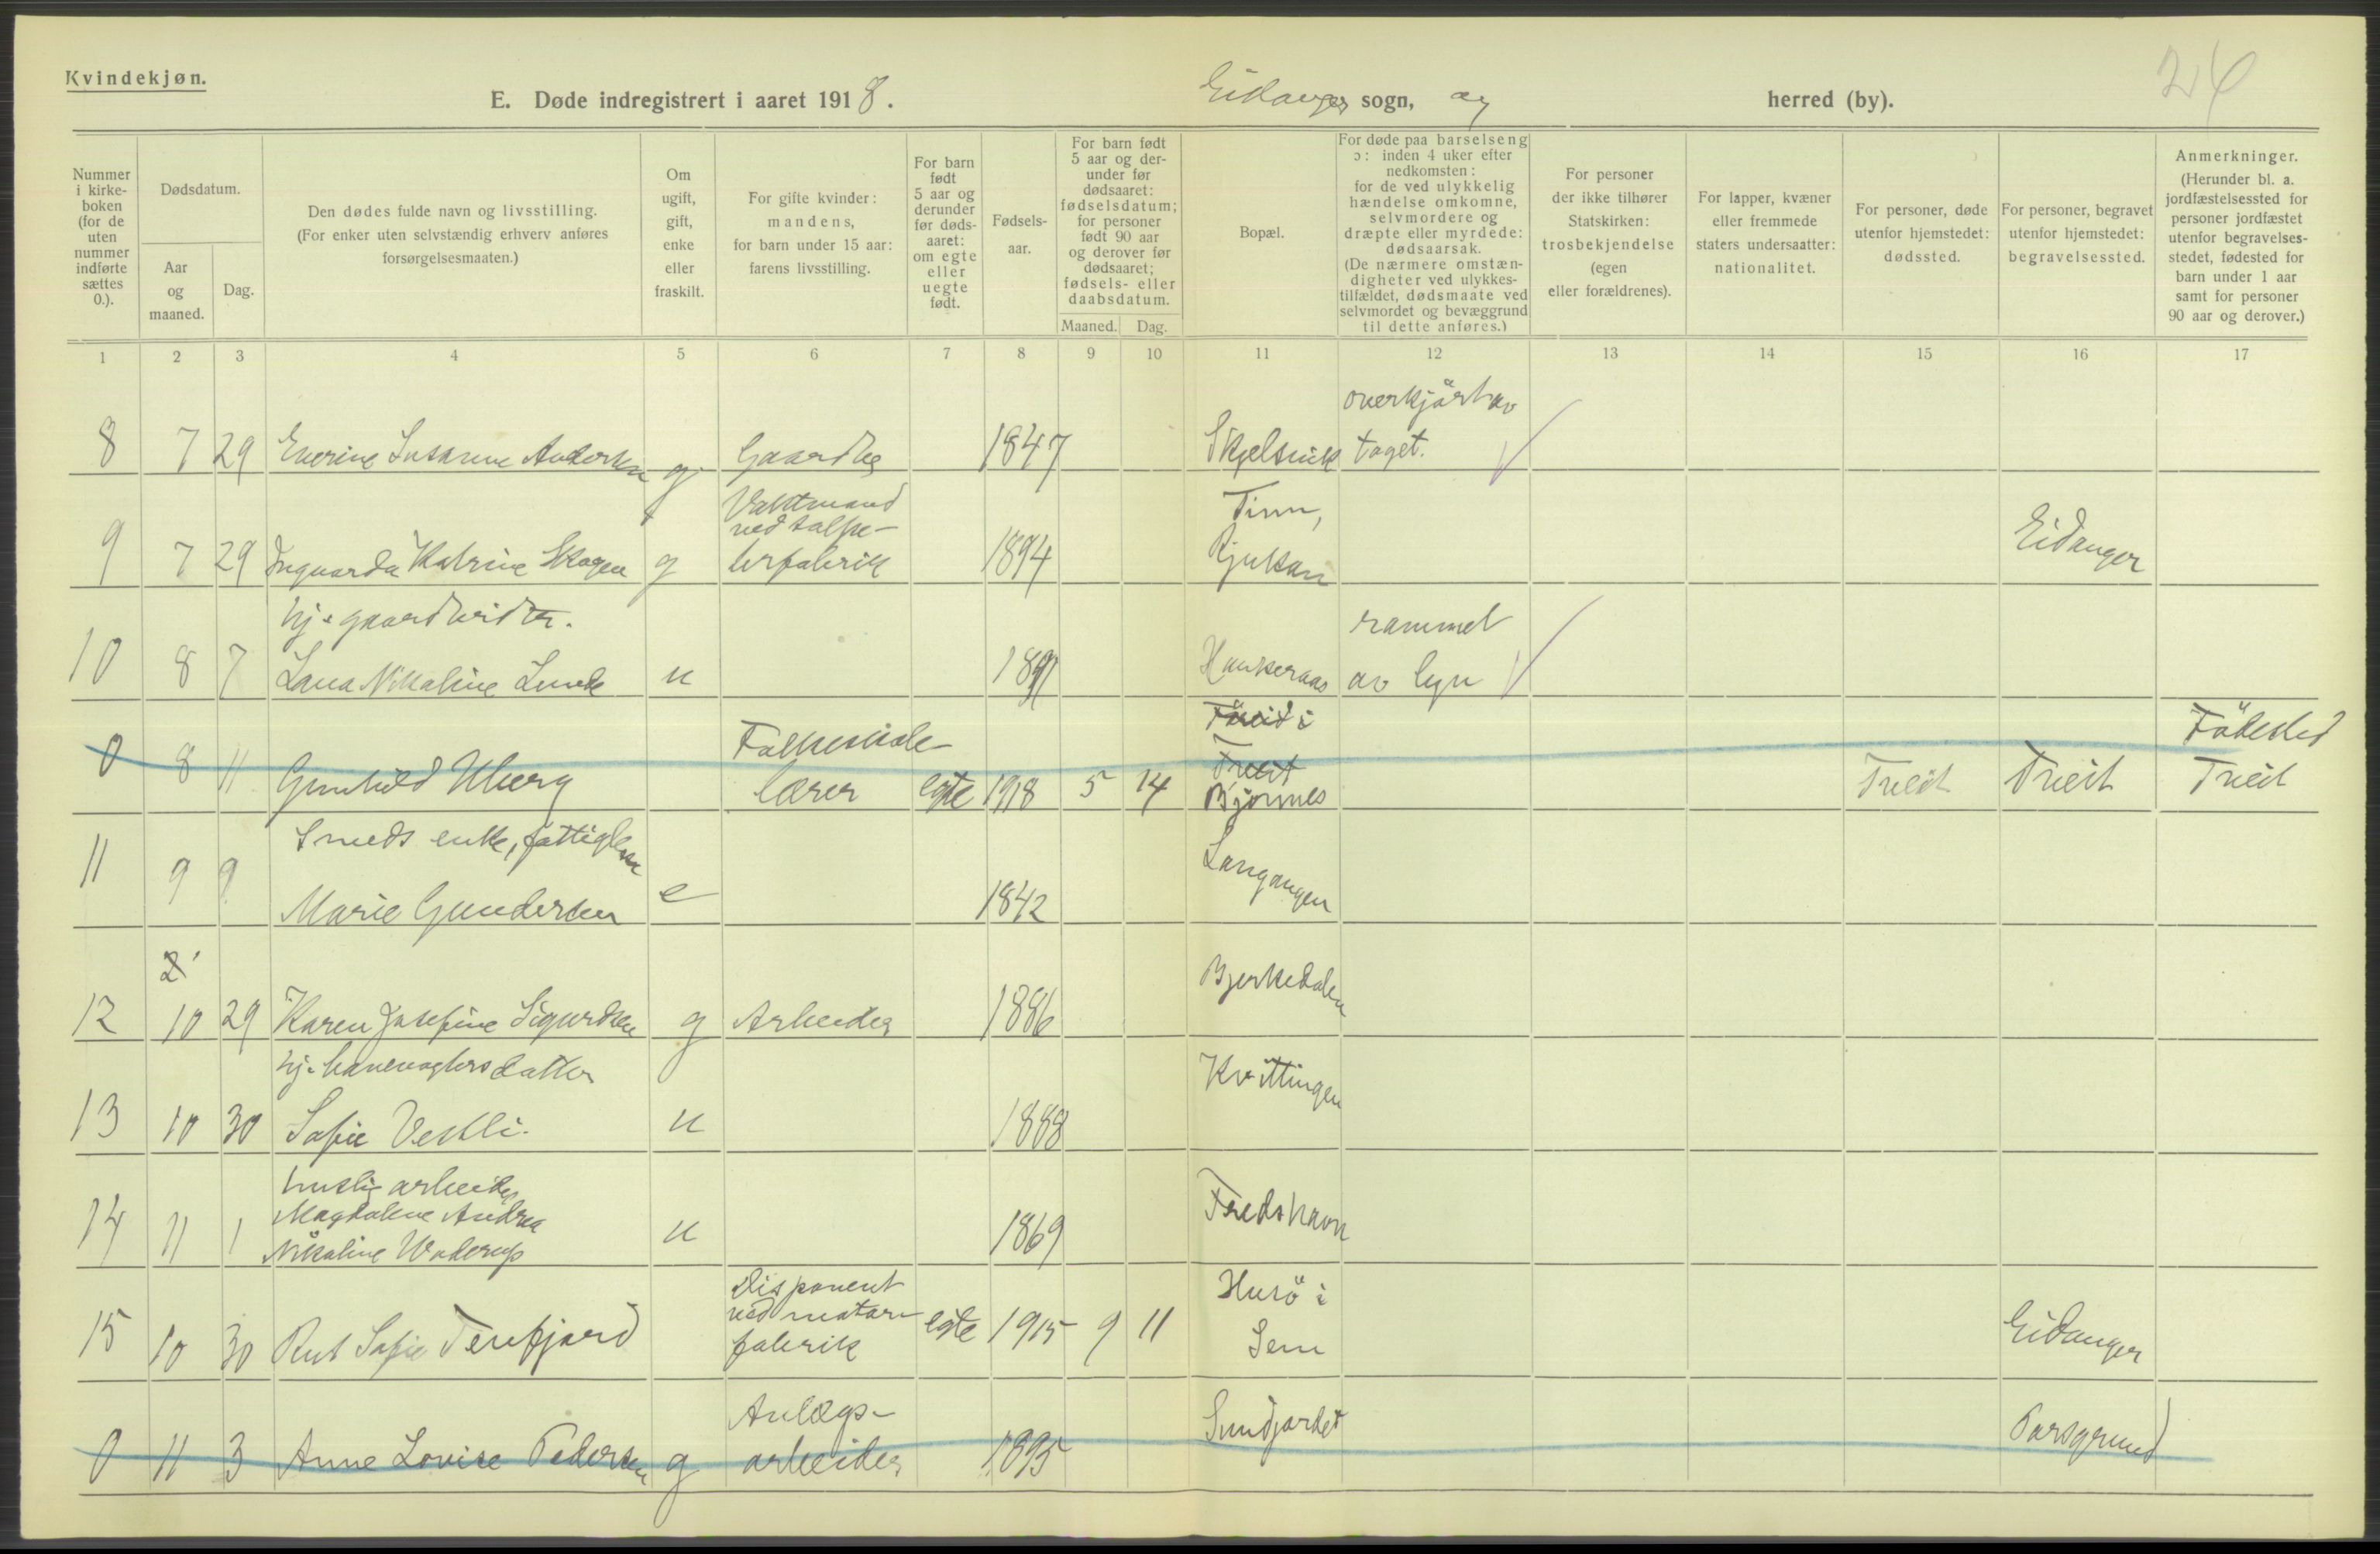 Kvindekjøn.
24
E. Døde indregistrert i aaret 1918. Eidanger sogn, og herred (by).
Nummer i kirkeboken (for de uten nummer indførte sættes 0.).
Dødsdatum.
Aar og maaned.
Dag.
Den dødes fulde navn og livsstilling.
(For enker uten selvstændig erhverv anføres forsørgelsesmaaten.)
Om ugift, gift, enke eller fraskilt.
For gifte kvinder: mandens, for barn under 15 aar: farens livsstilling.
For barn født 5 aar og derunder før dødsaaret: om egte eller uegte født.
Fødselsaar.
For barn født 5 aar og derunder før dødsaaret: fødselsdatum; for personer født 90 aar og derover før dødsaaret; fødsels- eller daabsdatum.
Maaned. Dag.
Bopæl.
For døde paa barselseng ɔ: inden 4 uker efter nedkomsten: for de ved ulykkelig hændelse omkomne, selvmordere og dræpte eller myrdede: dødsaarsak.
(De nærmere omstændigheter ved ulykkestilfældet, dødsmaate ved selvmordet og bevæggrund til dette anføres.)
For personer der ikke tilhører Statskirken: trosbekjendelse (egen eller forældrenes).
For lapper, kvæner eller fremmede staters undersaatter: nationalitet.
For personer, døde utenfor hjemstedet: dødssted.
For personer, begravet utenfor hjemstedet: begravelsessted.
Anmerkninger.
(Herunder bl. a. jordfæstelsessted for personer jordfæstet utenfor begravelsesstedet, fødested for barn under 1 aar samt for personer 90 aar og derover.)
1 2 3 4 5 6 7 8 9 10 11 12 13 14 15 16 17
overkjört av
8 7 29 Everine Susanne Andersen g Gaardbr 1847 Skjelsvik toget.
Vaktmand Tinn,
ved salpe-
9 7 29 Ingvarda Katrine Skogen g terfabrik 1894 Rjukan Eidanger
hj. gaardbrdtr. rammet
10 8 7 Lava Nikoline Lunde u Haukeraas av lyn
Folkeskole- Födested
0 8 11 Gunhild Uberg lærer egte 1918 5 14 Bjönnes Treit Treit Treit
Smeds enke, fattiglem
11 9 9 Marie Gundersen e 1842 Langangen
2
12 10 29 Karen Josefine Sigurdsen g Arbeider 1886 Bjerkedalen
hj. banevogtersdatter
13 10 30 Sofie Vestli. u 1888 Kvittingen
huslig arbeide
Magdalene Andrea
14 11 1 Nikoline Waderup u 1869 Fredshavn
Disponent Husö i
ved motor-
15 10 30 Rut Sofie Tenfjord fabrik egte 1915 9 11 Sem Eidanger
Anlægs-
0 11 3 Anne Lovise Pedersen g arbeider 1895 Sundjordet Porsgrund